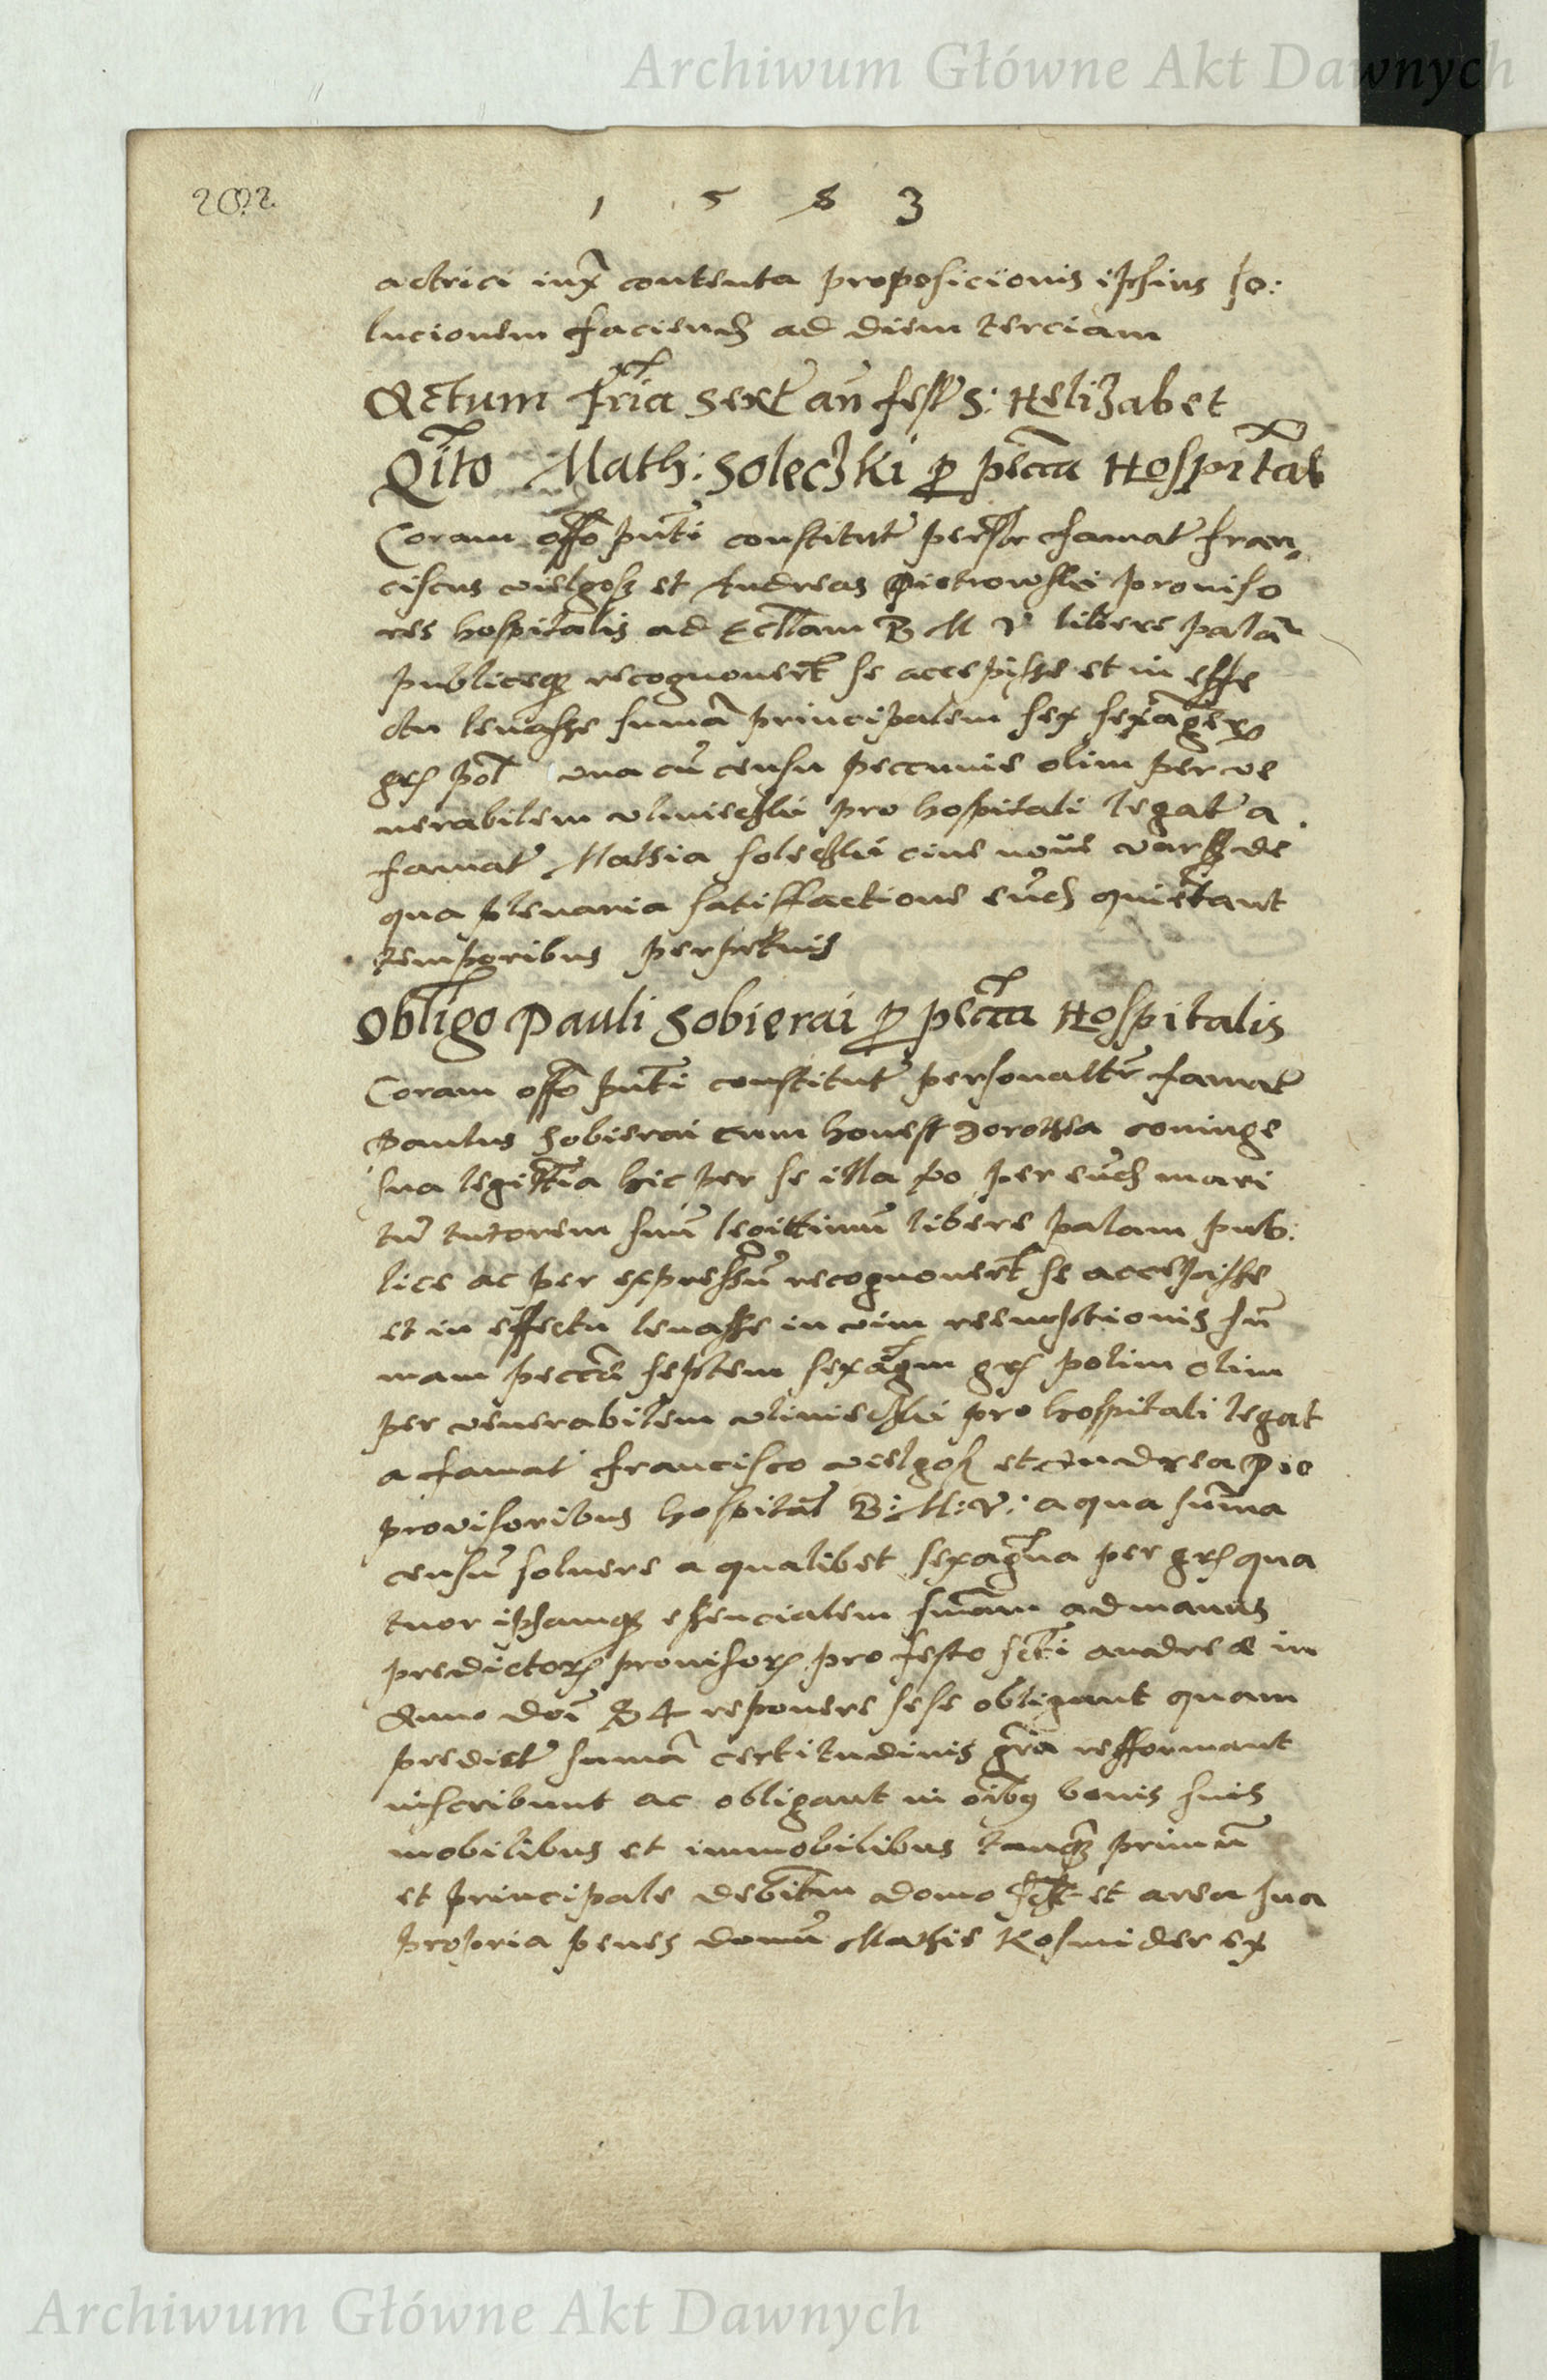 Archiwum Główne Akt Dawnych
202.
1 5 8 3
actrici iux contenta proposicionis ipsius so:
lucionem faciend ad diem terciam
Actum fria sext an fest S: Helizabet
Qito Math: Soleczki p pecca Hospital
Coram offo pnti constitut persr famat fran
ciscus vielgosz et Andreas Piotrowski proviso
res hospitalis ad Ecllam B M V libere palā
publiceq recognovert se accepisse et in effe
ctu levasse sumā principalem sex sexagex
grs pol una cū censu peccunie olim per ve
nerabilem vliniecski pro hospitali legat a
famat Mathia soleczki cive nove varsz de
qua plenaria satisfactione eūd quietant
temporibus perpetuis
Obligo Pauli Sobierai p pecca Hospitalis
Coram offo pnti constitut personaltr famat
Paulus Sobierai cum honest Dorothea coniuge
sua legittia hic per se illa vo per eūd mari
tū tutorem suū legittimū libere palam pub:
lice ac per expressū recognovert se accepisse
et in effectu levasse in vim reemptionis sū
mam peccē septem sexagm grs polim olim
per venerabilem vliniecski pro hospitali legat
a famat francisco vielgos et Andrea Pio
provisoribus hospital B: M: V: a qua suma
censū solvere a qualibet sexagna per grs qua
tuor ipsamq essencialem smam ad manus
predictor provisor pro festo scti andreæ in
Anno doi 84 reponere sese obligant quam
predict sumā certitudinis gria refformant
inscribunt ac obligant in oibq bonis suis
mobilibus et immobilibus tanq primū
et principale debitm domo et area sua
propria penes domū Mathie Kosmider ex
Archiwum Główne Akt Dawnych